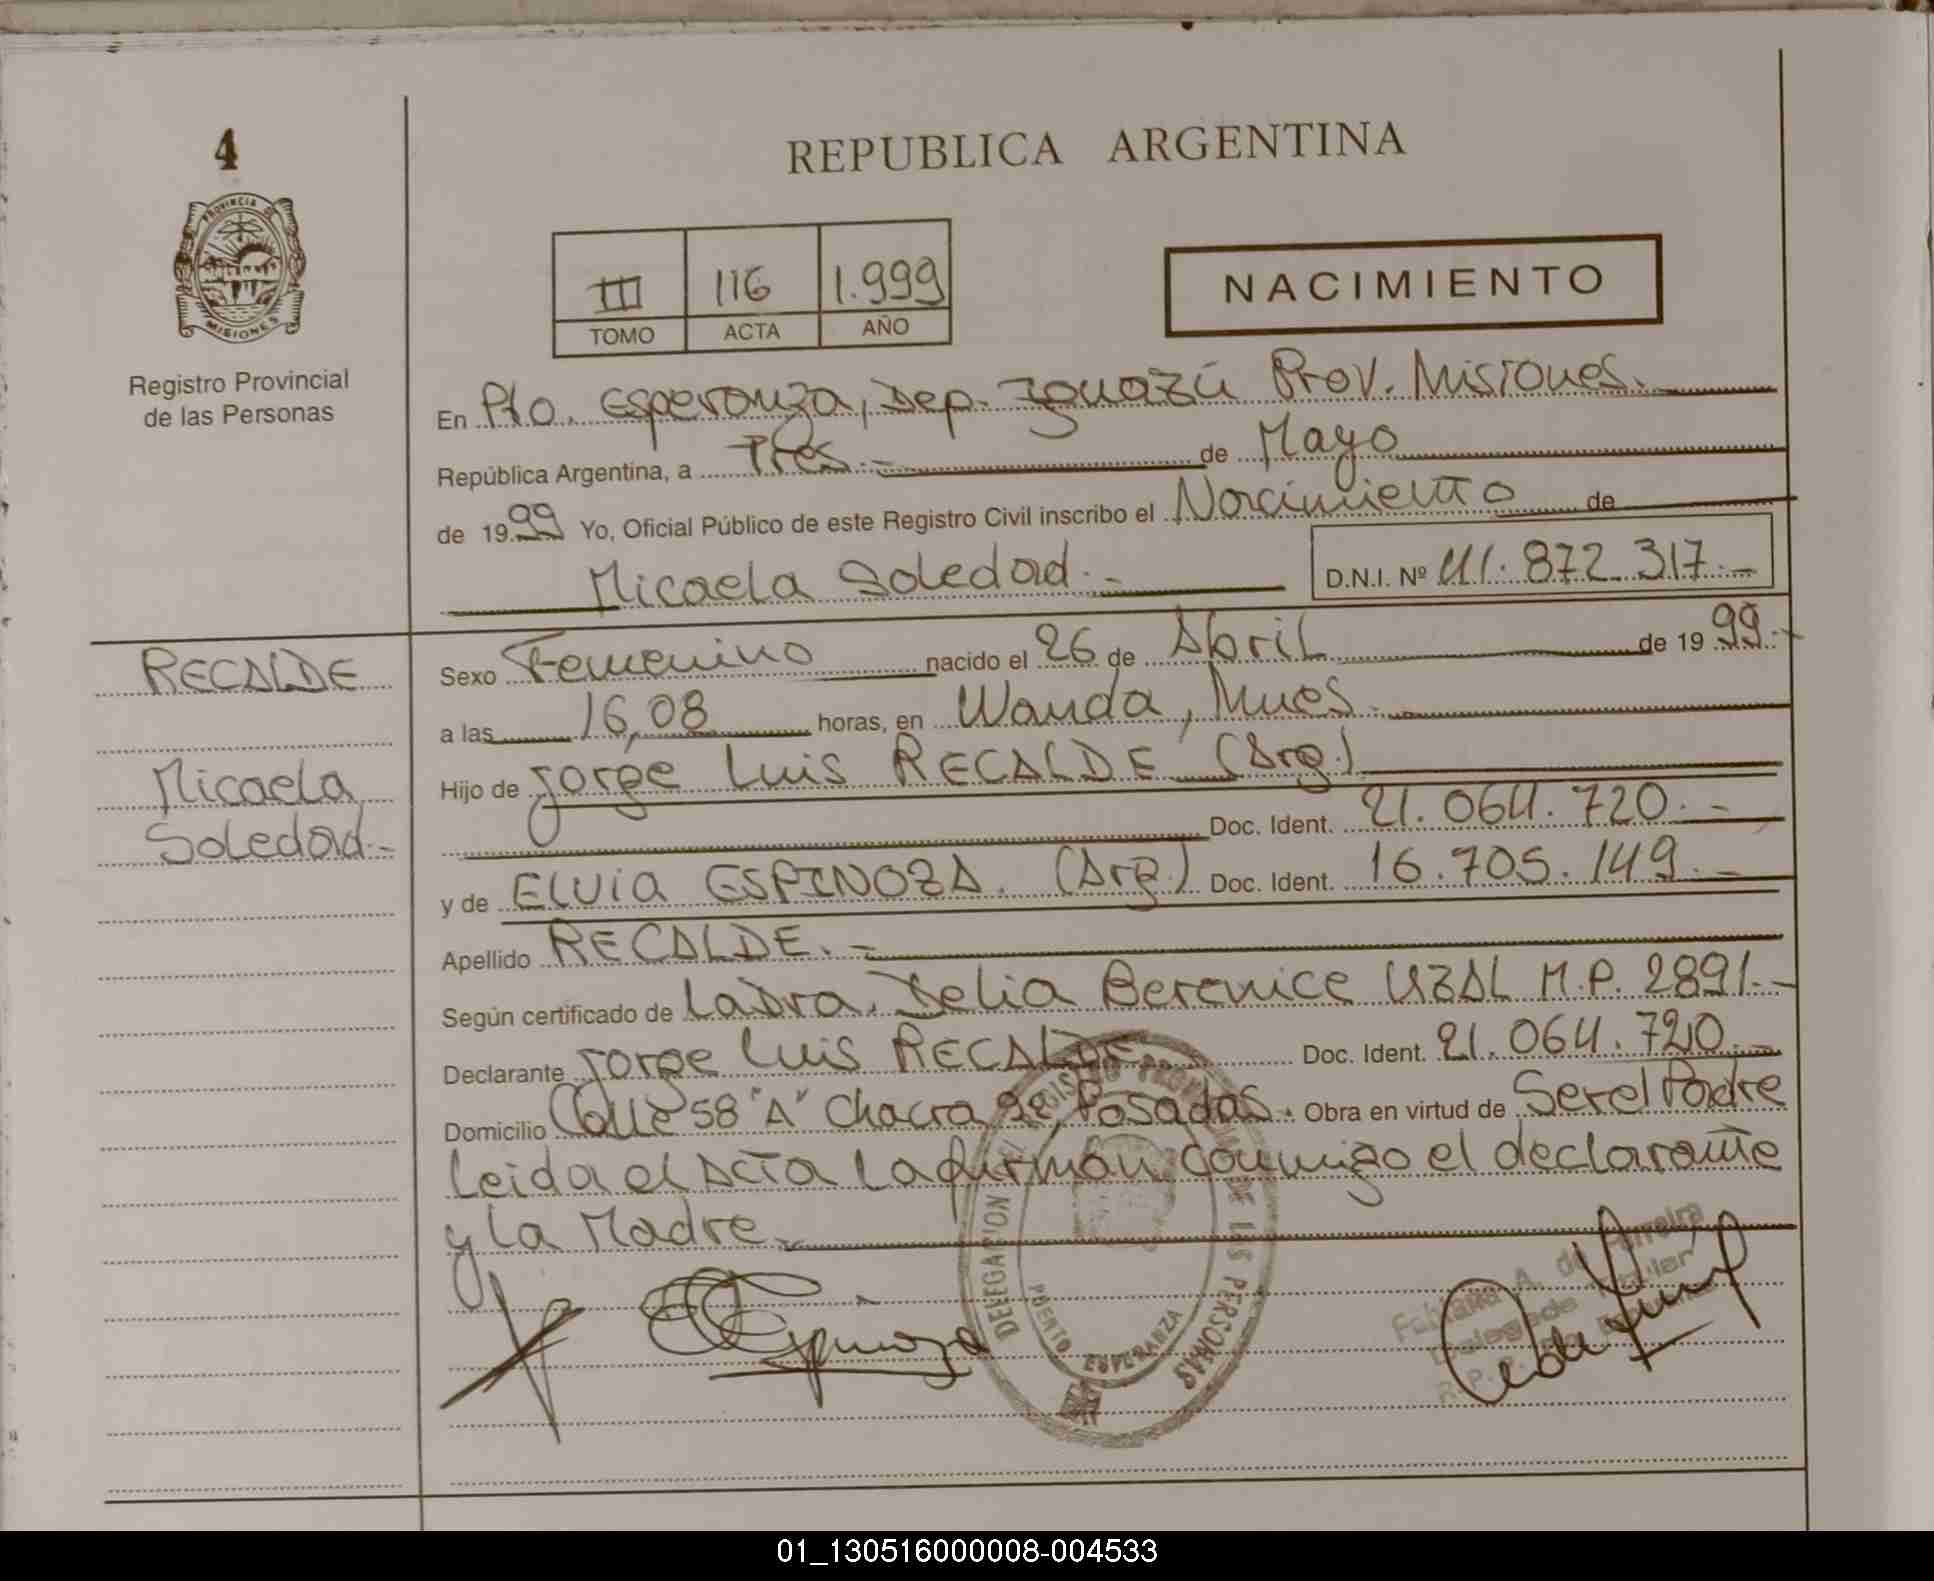 4
PROVINCIA DE
MISIONES
Registro Provincial
de las Personas
REPUBLICA ARGENTINA
III 116 1.999
TOMO ACTA AÑO
NACIMIENTO
En Pto. Esperanza, Dep. Iguazú Prov. Misiones.
República Argentina, a Tres.- de Mayo
de 1999 Yo, Oficial Público de este Registro Civil inscribo el Nacimiento de
Micaela Soledad.- D.N.I. Nº 41.872.317.-
RECALDE
Micaela
Soledad.-
Sexo Femenino nacido el 26 de Abril de 1999.-
a las 16,08 horas, en Wanda, Mnes.
Hijo de Jorge Luis RECALDE (Arg.)
Doc. Ident. 21.064.720.-
y de ELVIA ESPINOZA. (Arg.) Doc. Ident. 16.705.149.-
Apellido RECALDE.-
Según certificado de La Dra. Delia Berenice UZAL M.P. 2891.-
Declarante Jorge Luis RECALDE Doc. Ident. 21.064.720.-
Domicilio Calle 58 "A" Chacra Posadas. Obra en virtud de Ser el Padre
Leida el Acta La firman conmigo el declarante
y La Madre.
DELEGACION REGISTRO PROVINCIAL DE LAS PERSONAS
PUERTO ESPERANZA
Espinoza
Fabiana A. de Ferreira
Delegada Titular
01_130516000008-004533